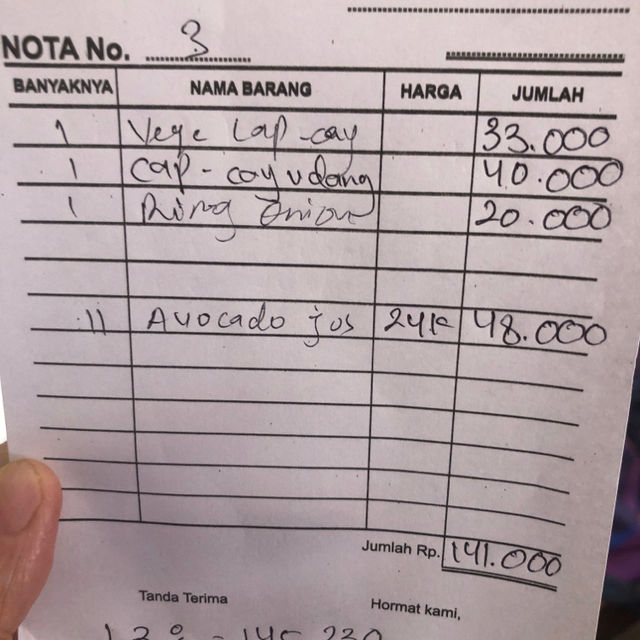 NOTA No. 3
BANYAKNYA NAMA BARANG HARGA JUMLAH
1 Vege Cap-cay 33.000
1 Cap-cay udang 40.000
1 Ring Onion 20.000
11 Avocado jos 24k 48.000
Jumlah Rp. 141.000
Tanda Terima Hormat kami,